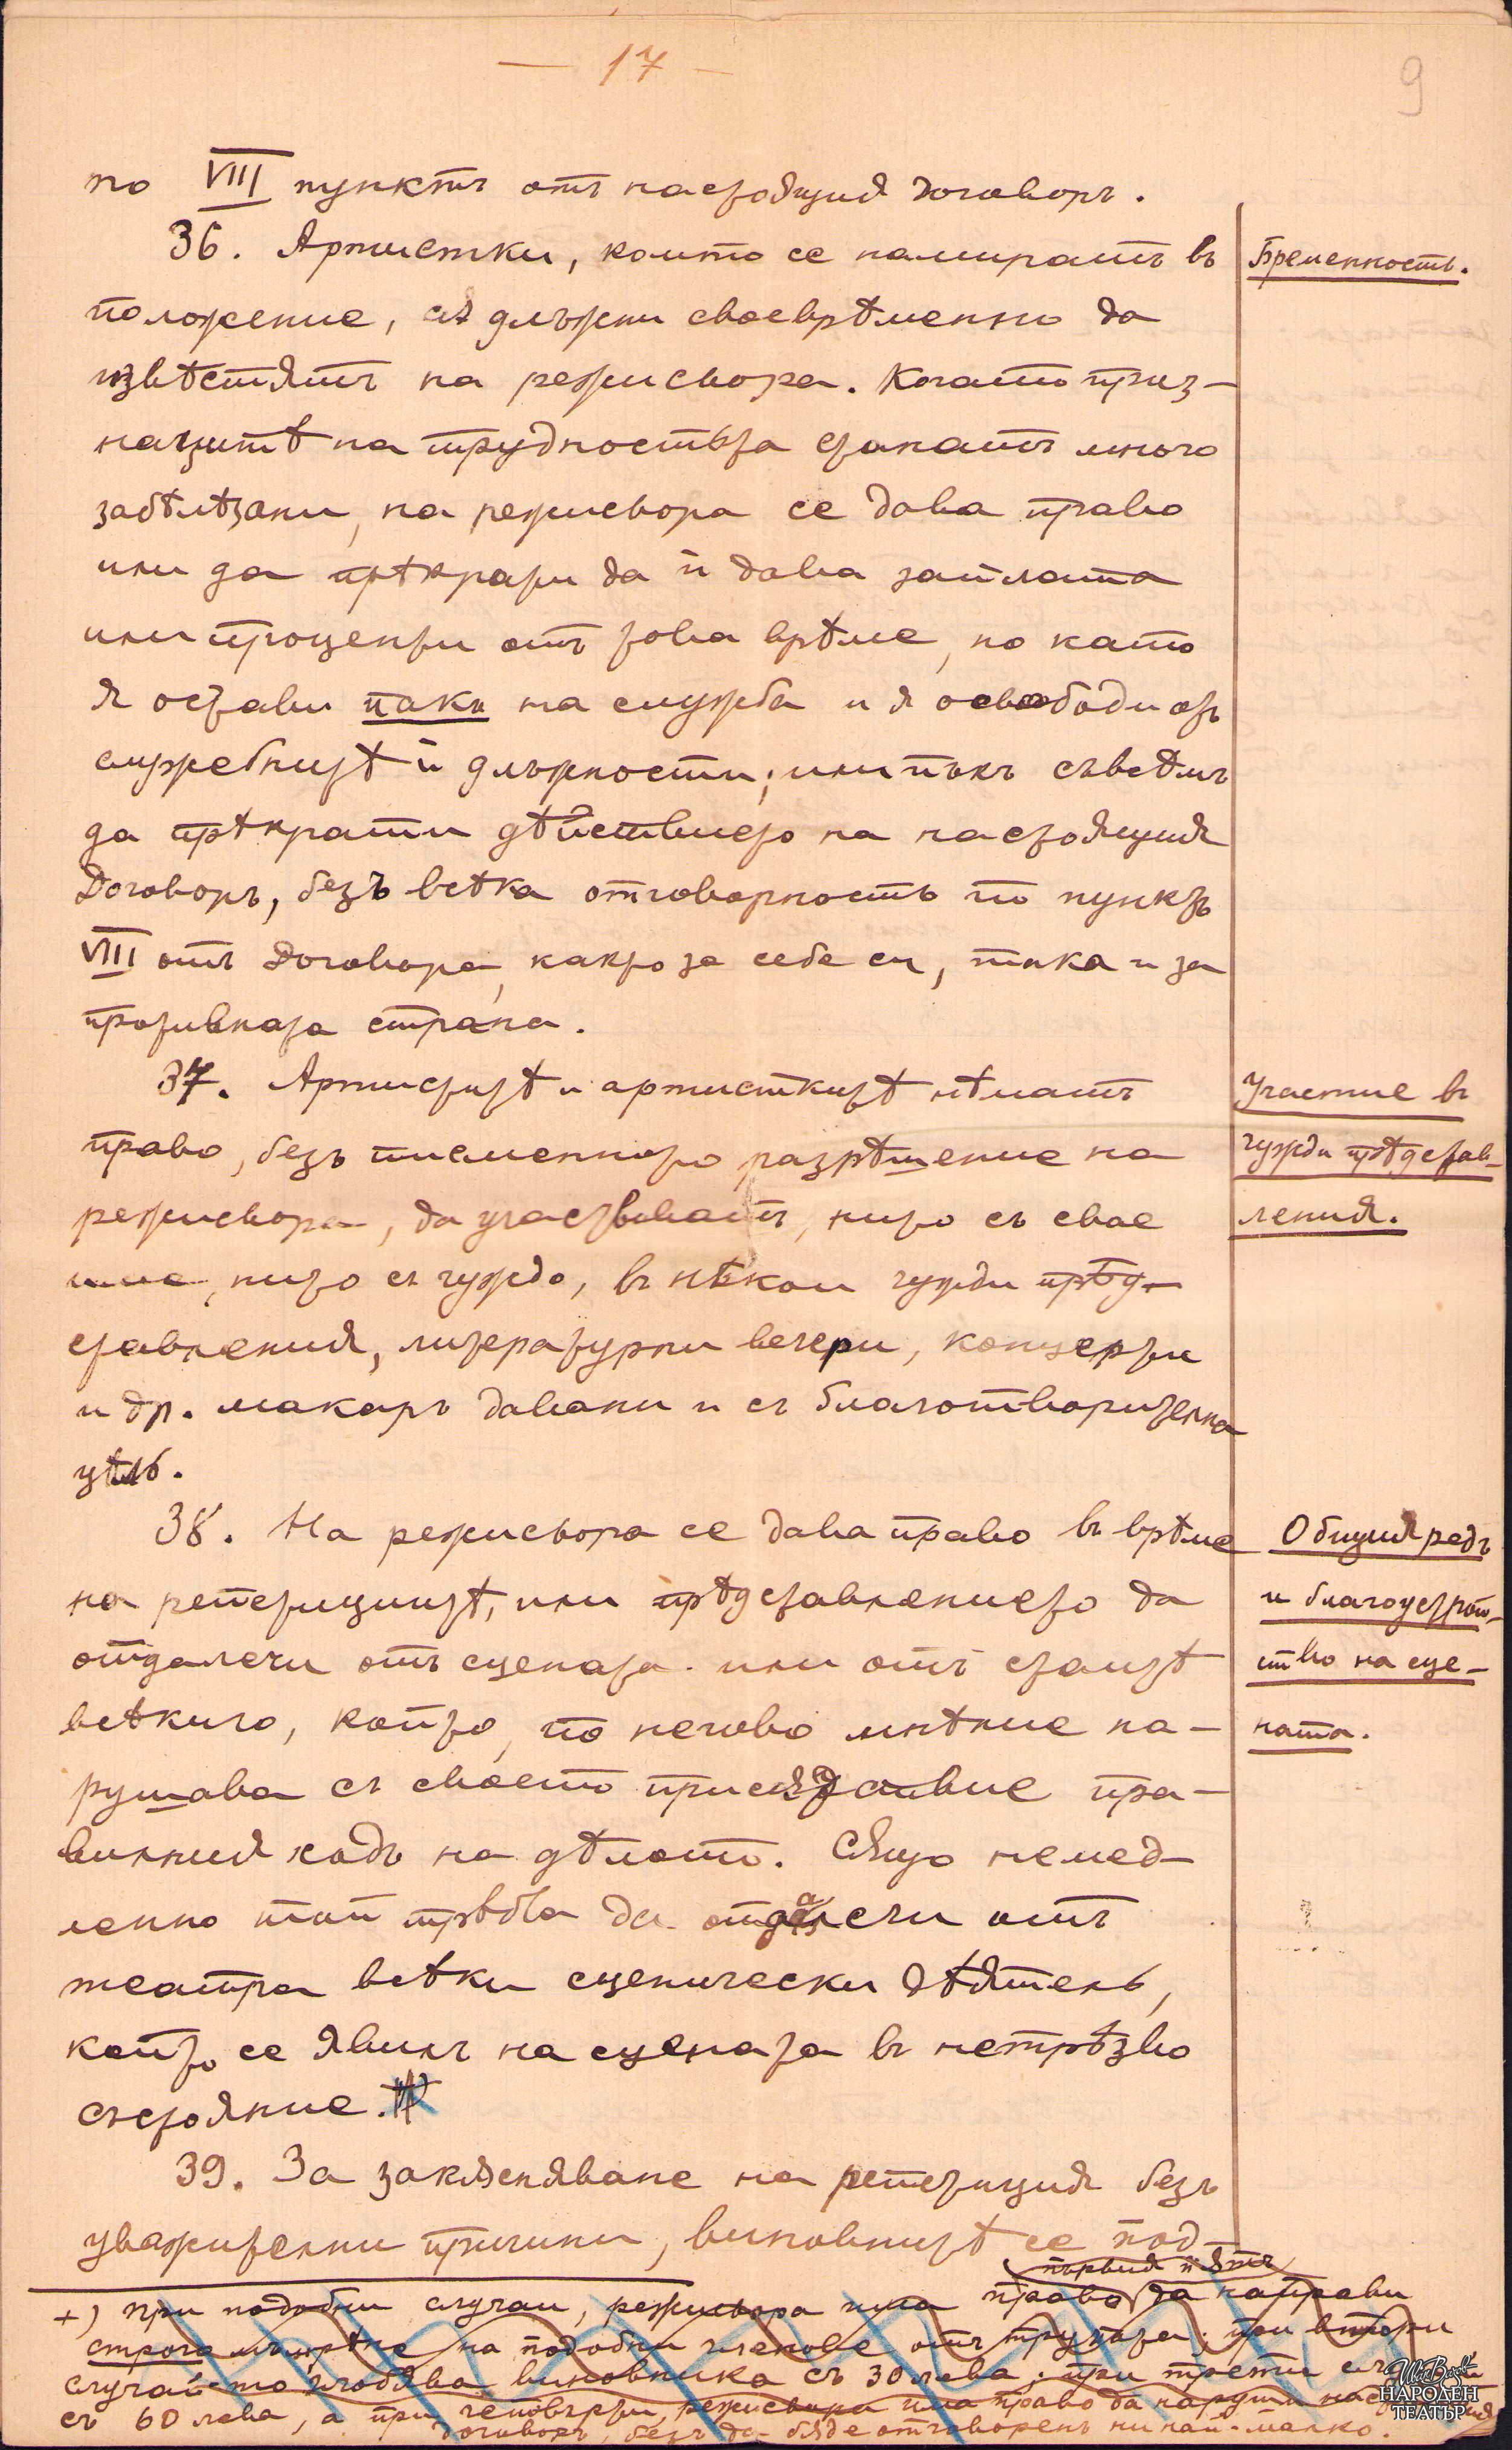 — 17 —
9
по VIII пунктъ отъ настоящия договоръ.
36. Артистки, които се намиратъ въ
Бременность.
положение, сѫ длъжни своеврѣменно да
извѣстятъ на режисьора. Когато приз-
нацитѣ на трудностьта станатъ много
забѣлѣзани, на режисьора се дава право
или да прѣкрати да ѝ дава заплата
или проценти отъ това врѣме, но като
я остави пакъ на служба и я освободи отъ
служебнитѣ ѝ длъжности; или пъкъ съвсѣмъ
да прѣкрати дѣйствието на настоящия
Договоръ, безъ всѣка отговорность по пунктъ
VIII отъ Договора, както за себе си, така и за
противната страна.
37. Артиститѣ и артисткитѣ нѣматъ
Участие въ
право, безъ писменното разрѣшение на
чужди прѣдстав-
режисьора, да участвуватъ, нито съ свое
ления.
име, нито съ чуждо, въ нѣкои чужди прѣд-
ставления, литературни вечери, концерти
и др. макаръ давани и съ благотворителна
цѣль.
38. На режисьора се дава право въ врѣме
Общия редъ
на репетициитѣ, или прѣдставлението да
и благоустрой-
отдалечи отъ сцената или отъ стаитѣ
ство на сце-
всѣкиго, който, по негово мнѣние на-
ната.
рушава съ своето присѫствие пра-
вилния ходъ на дѣлото. Сѫщо немед-
ленно той трѣбва да отдалечи отъ
театра всѣки сценически дѣятель,
който се явилъ на сцената въ нетрѣзво
състояние.
39. За закъсняване на репетиция безъ
уважителни причини, виновнитѣ се под-
първия пѫть
+) При подобни случаи, режисьора има право да направи
строго мъмрѣне на подобни членове отъ трупата; при втори
случай-то глобява виновника съ 30 лева; при трети
съ 60 лева, а при четвърти, режисьора има право да наруши
договоръ, безъ да бѫде отговоренъ ни най-малко.
Ив. Вазов
НАРОДЕН
ТЕАТЪР